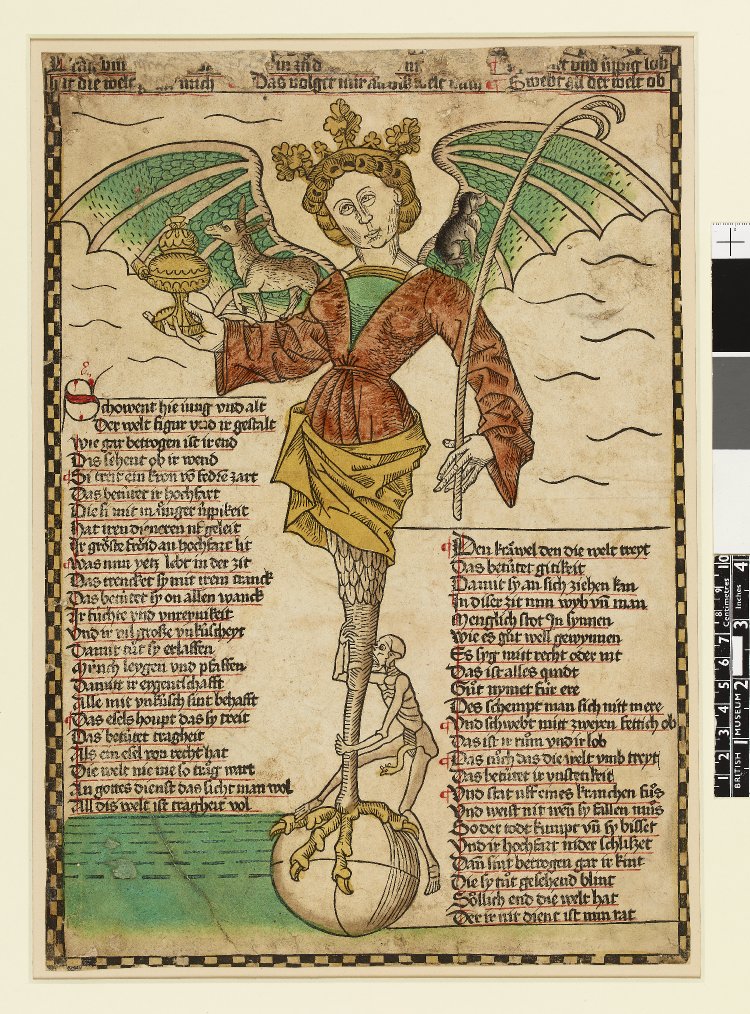 hie die welt mich Das volget mir Swebt all der welt ob
und üppig lob
Schowent hie iung vnd alt
Der welt figur vnd ir gestalt
Wie gar betrogen ist ir end
Dis sehent ob ir wend
Si treit ein kron vō federē zart
Das betütet ir hochfart
Die si mit üpikeit
Hat iren dieneren geleit
Ir gröste fröid an hochfart lit
Was nun yetz lebt in der zit
Das trencket sy mit irem tranck
Das betütet sy on allen wanck
Ir füchte vnd vnreynikeit
Vnd ir vil große vnküscheyt
Damit tüt sy erlassen
Münch leygen vnd pfaffen
Damitt ir eygentschafft
Alle mit vnküsch sint behafft
Das esels houpt das sy treit
Das betütet tragheit
Als ein esel von recht hat
Die welt nie me so träg wart
An gottes dienst das sicht man wol
All dis welt ist tragheit vol
Den kräwel den die welt treyt
Das betütet gitikeit
Damit sy an sich ziehen kan
In diser zit nun wyb vn̄ man
Menglich stot in synnen
Wie es güt well gewynnen
Es syg mit recht oder nit
Das ist alles
Güt nymet für ere
Des schempt man sich mitt mere
Vnd schwebt mitt zweyen fettich ob
Das ist ir rům vnd ir lob
Das tůch das die welt vmb treyt
Das betütet ir vnstetikeit
Vnd stat vff eines kranchen fůs
Vnd weist nit wen sy fallen můs
So der todt kumpt vn̄ sy bisset
Vnd ir hochfart nider schlisset
Dan̄ sint betrogen gar ir kint
Die sy tůt gesehend blint
Söllich end die welt hat
Der ir nit dient ist min rat
Centimetres
Inches
BRITISH MUSEUM